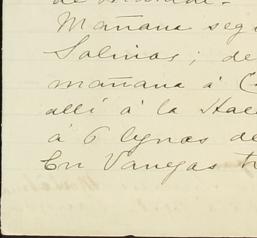 Mañana seg
Salinas; de
mañana á C
allí á la Hac
á 6 lynas de
En Vanegas tr